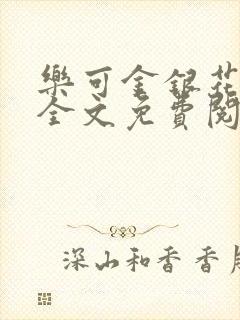 樂可金銀花
全文免費閱
深山和香香